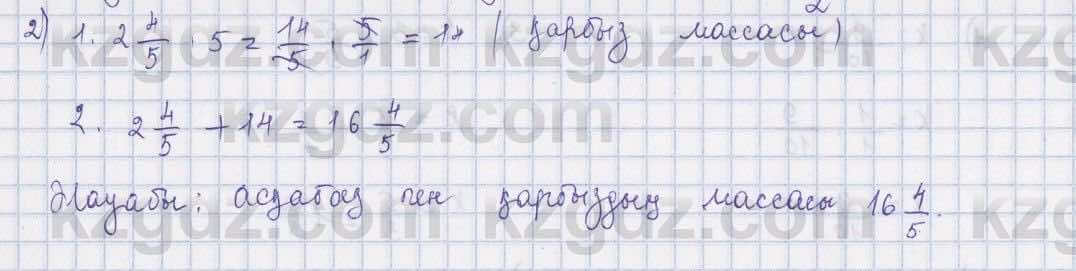 2) 1. 2 4/5 · 5 = 14/5 · 5/1 = 14 (қарбыз массасы)
2. 2 4/5 + 14 = 16 4/5
Жауабы: асқабақ пен қарбыздың массасы 16 4/5.
kzgdz.com